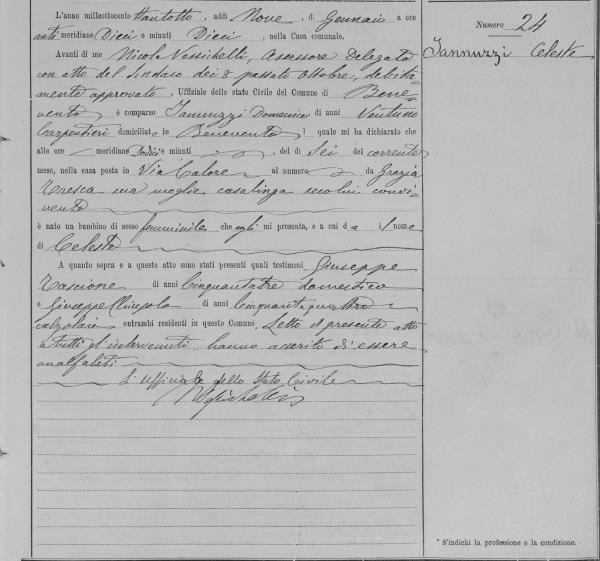 L'anno milleottocento ttantotto, addì Nove, di Gennaio a ore
anti meridiane Dieci e minuti Dieci, nella Casa comunale.
Avanti di me Nicola Vessichelli, Assessore Delegato
con atto del Sindaco dei 8 passato Ottobre, debita-
mente approvato, Uffiziale dello stato Civile del Comune di Bene-
vento, è comparso Iannuzzi Domenico di anni Ventuno
Carpentieri domiciliato in Benevento il quale mi ha dichiarato che
alle ore meridiane Dodici e minuti, del dì Sei del corrente
mese, nella casa posta in Via Calore al numero da Grazia
sua moglie casalinga seco lui convi-
vente
è nato un bambino di sesso femminile che egli mi presenta, e a cui dà il nome
di Celeste
A quanto sopra e a questo atto sono stati presenti quali testimoni Giuseppe
di anni Cinquantatre domestico
e Giuseppe di anni Cinquantaquattro
calzolaio entrambi residenti in questo Comune. Letto il presente atto
a tutti gl'intervenuti hanno asserito di essere
analfabeti
L'Uffiziale dello Stato Civile
Numero 24
Iannuzzi Celeste
* S'indichi la professione o la condizione.